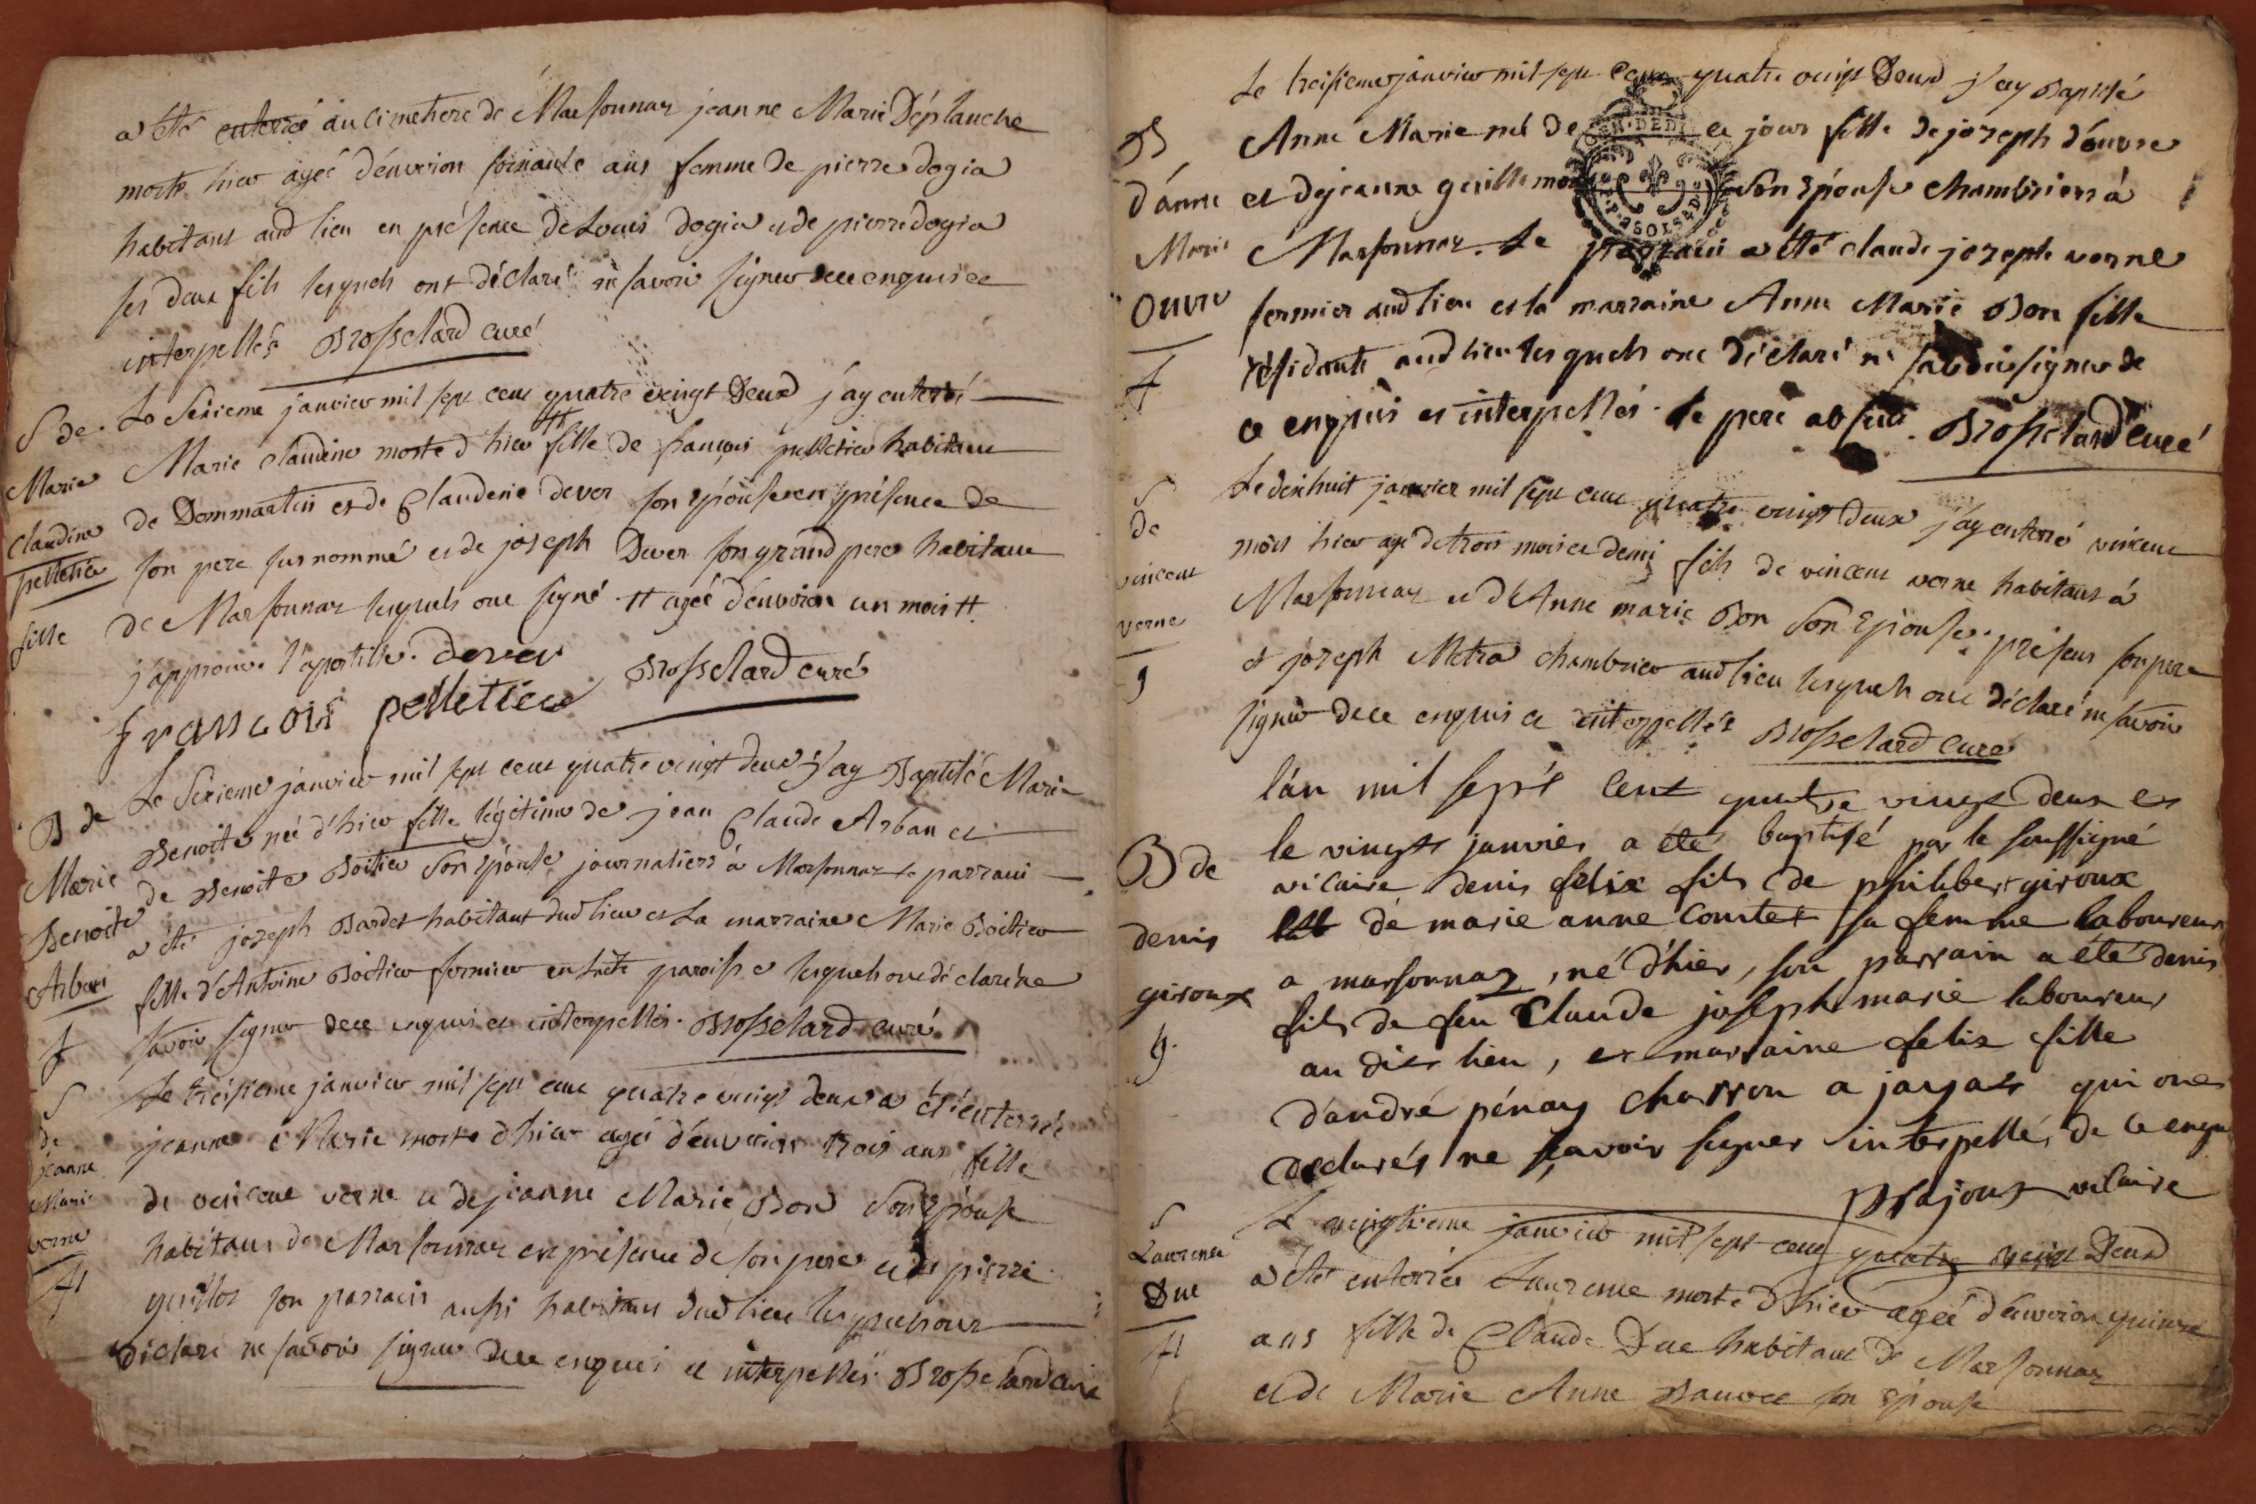 a été enterré au cimetiere de Marsonnaz jeanne Marie Déplanche
morte hier agée d'environ soixante ans femme de pierre dogia
habitant aud lieu en présence de Louis dogia et de pierre dogia
ses deux fils lesquels ont déclaré ne savoir signer de ce enquis et
interpellés Brosselard curé
S de
Marie
claudine
pelletié
fille
Le Sixieme janvier mil sept cent quatre vingt Deux j'ay enterré
Marie claudine morte d'hier # fille de françois pelletier habitant
de Dommartin et de Claudine dever son épouse en présence de
son pere susnommé et de joseph Dever son grand pere habitant
de Marsonnaz lesquels ont signé. # agée d'environ un mois #
j'approuve l'apostille. dever
françois pelletier Brosselard curé
B de
Marie
Benoite
Arban
f
Le Sixieme janvier mil sept cent quatre vingt deux j'ay Baptisé Marie
Benoite née d'hier fille légitime de jean Claude Arban et
de Benoite Boitier son épouse journaliers à Marsonnaz le parrain
a été joseph Bardet habitant dud lieu et La marraine Marie Boitier
fille d'Antoine Boitier fermier en paroisse lesquels ont déclaré ne
savoir signer de ce enquis et interpellés. Brosselard curé
S
de
jeanne
Marie
verne
Le treisieme janvier mil sept cent quatre vingt deux a été enterrée
jeanne Marie morte d'hier agée d'environ trois ans fille
de vincent verne et de jeanne Marie Bon son épouse
habitans de Marsonnaz en présence de son pere et de pierre
guillot son parrain aussi habitant dud lieu lesquels ont
déclaré ne savoir signer de ce enquis et interpellés Brosselard curé
Le treisieme janvier mil sept cent quatre vingt Deux j'ay Baptisé
B
d'anne
Marie
ouvre
f
Anne Marie née de ce jour fille de joseph d'ouvre
et de jeanne guillemon son épouse chambriers à
Marsonnaz. Le parrain a été claude joseph verne
fermier aud lieu et la marraine Anne Marie Bon fille
résidante aud lieu lesquels ont déclaré ne savoir signer de
ce enquis et interpellés. Le pere absent. Brosselard curé
S
de
vincent
verne
g
Le dixhuit janvier mil sept cent quatre vingt deux j'ay enterré vincent
mort hier agé de trois mois et demi fils de vincent verne habitant à
Marsonnaz et d'Anne marie Bon son épouse. présens son pere
et joseph Metra chambrier aud lieu lesquels ont déclaré ne savoir
signer de ce enquis et interpellés Brosselard curé
B de
denis
giroux
g.
l'an mil sept cent quatre vingt deux et
le vingt janvier a été baptisé par le soussigné
vicaire denis felix fils de philibert giroux
de marie anne comtet sa femme laboureur
a marsonnaz, né d'hier, son parrain a été denis
fils de feu Claude joseph marie laboureur
au dit lieu, et marraine felix fille
d'andré pénay charron a jayat qui ont
declarés ne sçavoir signer interpellés de ce enquis
prajoux vicaire
S
Laurence
Duc
Le vingtieme janvier mil sept cent quatre vingt Deux
a été enterrée Laurence morte d'hier agée d'environ quinze
ans fille de Claude Duc habitant de Marsonnaz
et de Marie Anne son épouse